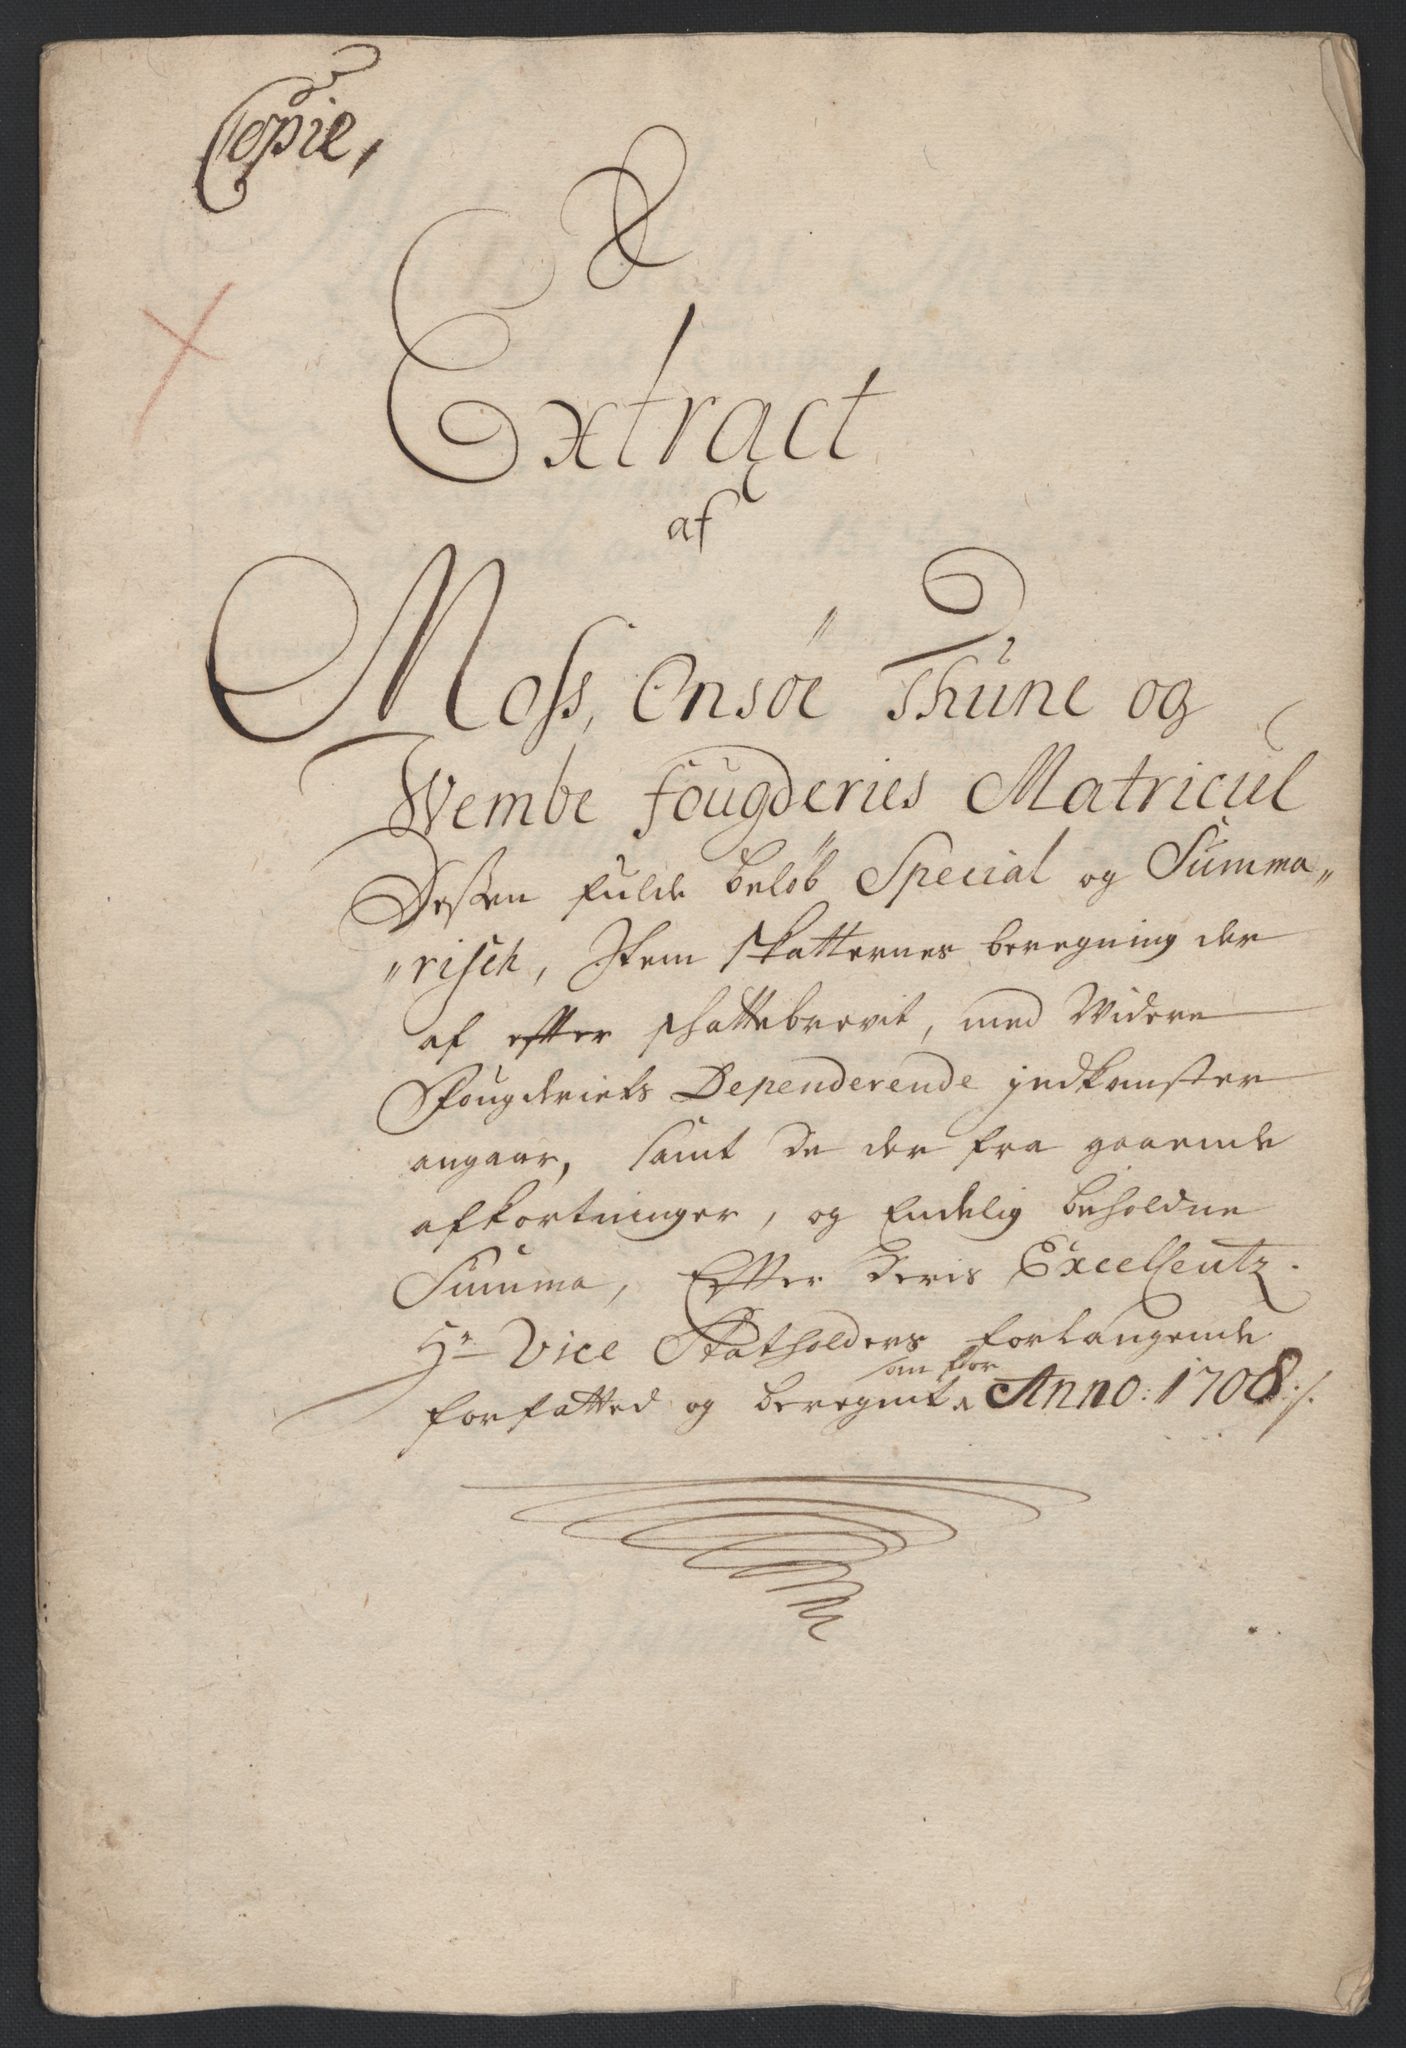 Copie,
Extract
af
Moss, Onsöe Thune og
Wembe fougderies Matricul
Dessen fulde beløb Special og Summa„
„risch, Item skatternes beregning der
af effter skattebrevit, med Widere
Fougderiets Dependerende jndkomster
angaar, samt de der fra gaaende
afkortninger, og Endelig beholdne
Summa, Effter deris Excellentz.
Hr Vice Statholders forlangende
om for
forfatted og beregnet Anno: 1708./.